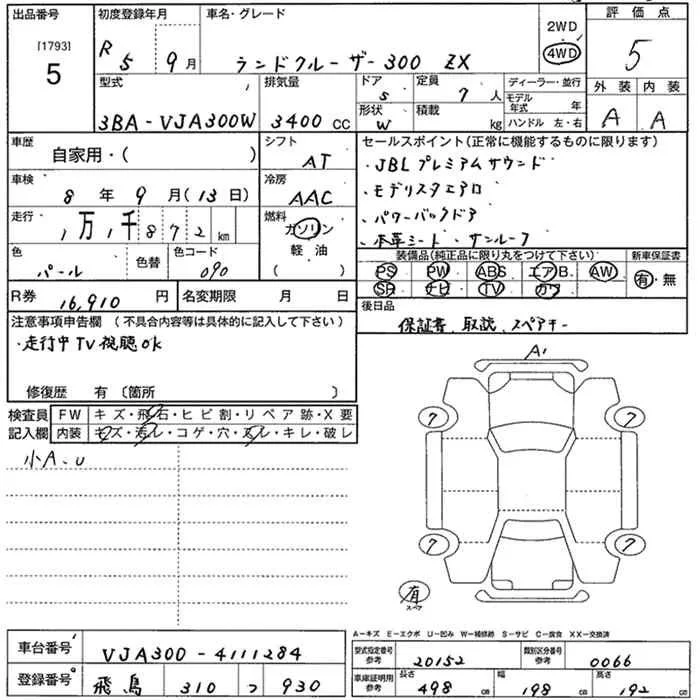 出品番号 初度登録年月 車名・グレード 2WD 評価点
[1793] R 5 9月 ランドクルーザー300 ZX 4WD 5
5
型式 排気量 ドア 定員 ディーラー・並行 外装 内装
5 7人 モデル年式 年
3BA-VJA300W 3400cc 形状 W 積載 kg ハンドル 左・右 A A
車歴 自家用・( ) シフト AT セールスポイント(正常に機能するものに限ります)
・JBLプレミアムサウンド
車検 8年 9月(13日) 冷房 AAC ・モデリスタエアロ
走行 1万1千872km 燃料 ガソリン ・パワーバックドア
軽油 ・本革シート、サンルーフ
色 パール 色替 色コード 090 ( ) 装備品(純正品に限り丸をつけて下さい) 新車保証書
PS PW ABS エアB AW 有・無
R券 16,910円 名変期限 月 日 SR ナビ TV カワ
後日品
注意事項申告欄 (不具合内容等は具体的に記入して下さい) 保証書、取説、スペアキー
・走行中TV視聴OK
修復歴 有〔箇所 〕
A1
検査員記入欄 FW キズ・飛石・ヒビ割・リペア跡・X要
内装 キズ・汚レ・コゲ・穴・スレ・キレ・破レ
小A、U
7 7
7 7
有
スペア
A-キズ E-エクボ U-凹み W-補修跡 S-サビ C-腐食 XX-交換済
車台番号 VJA300-4111284 型式指定番号 参考 20152 類別区分番号 参考 0066
登録番号 飛鳥 310 つ 930 車庫証明用 参考 長さ 498cm 幅 198cm 高さ 192cm